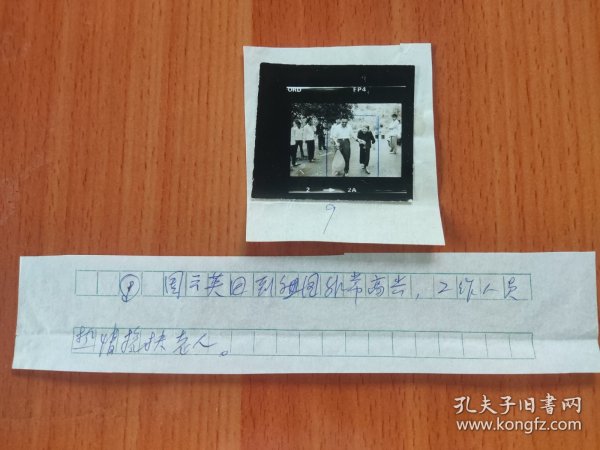 ORD FP4
2 2A
9
⑨ 周云英回到祖国非常高兴，工作人员
热情搀扶老人。
孔夫子旧书网
www.kongfz.com